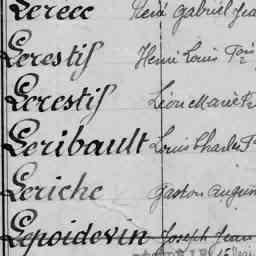 Lerecc René Gabriel Jea
Lerestif Henri Louis
Lerestif Léon Marie
Leribault Louis Charles
Leriche Gaston
Lepoidevin Joseph Jean